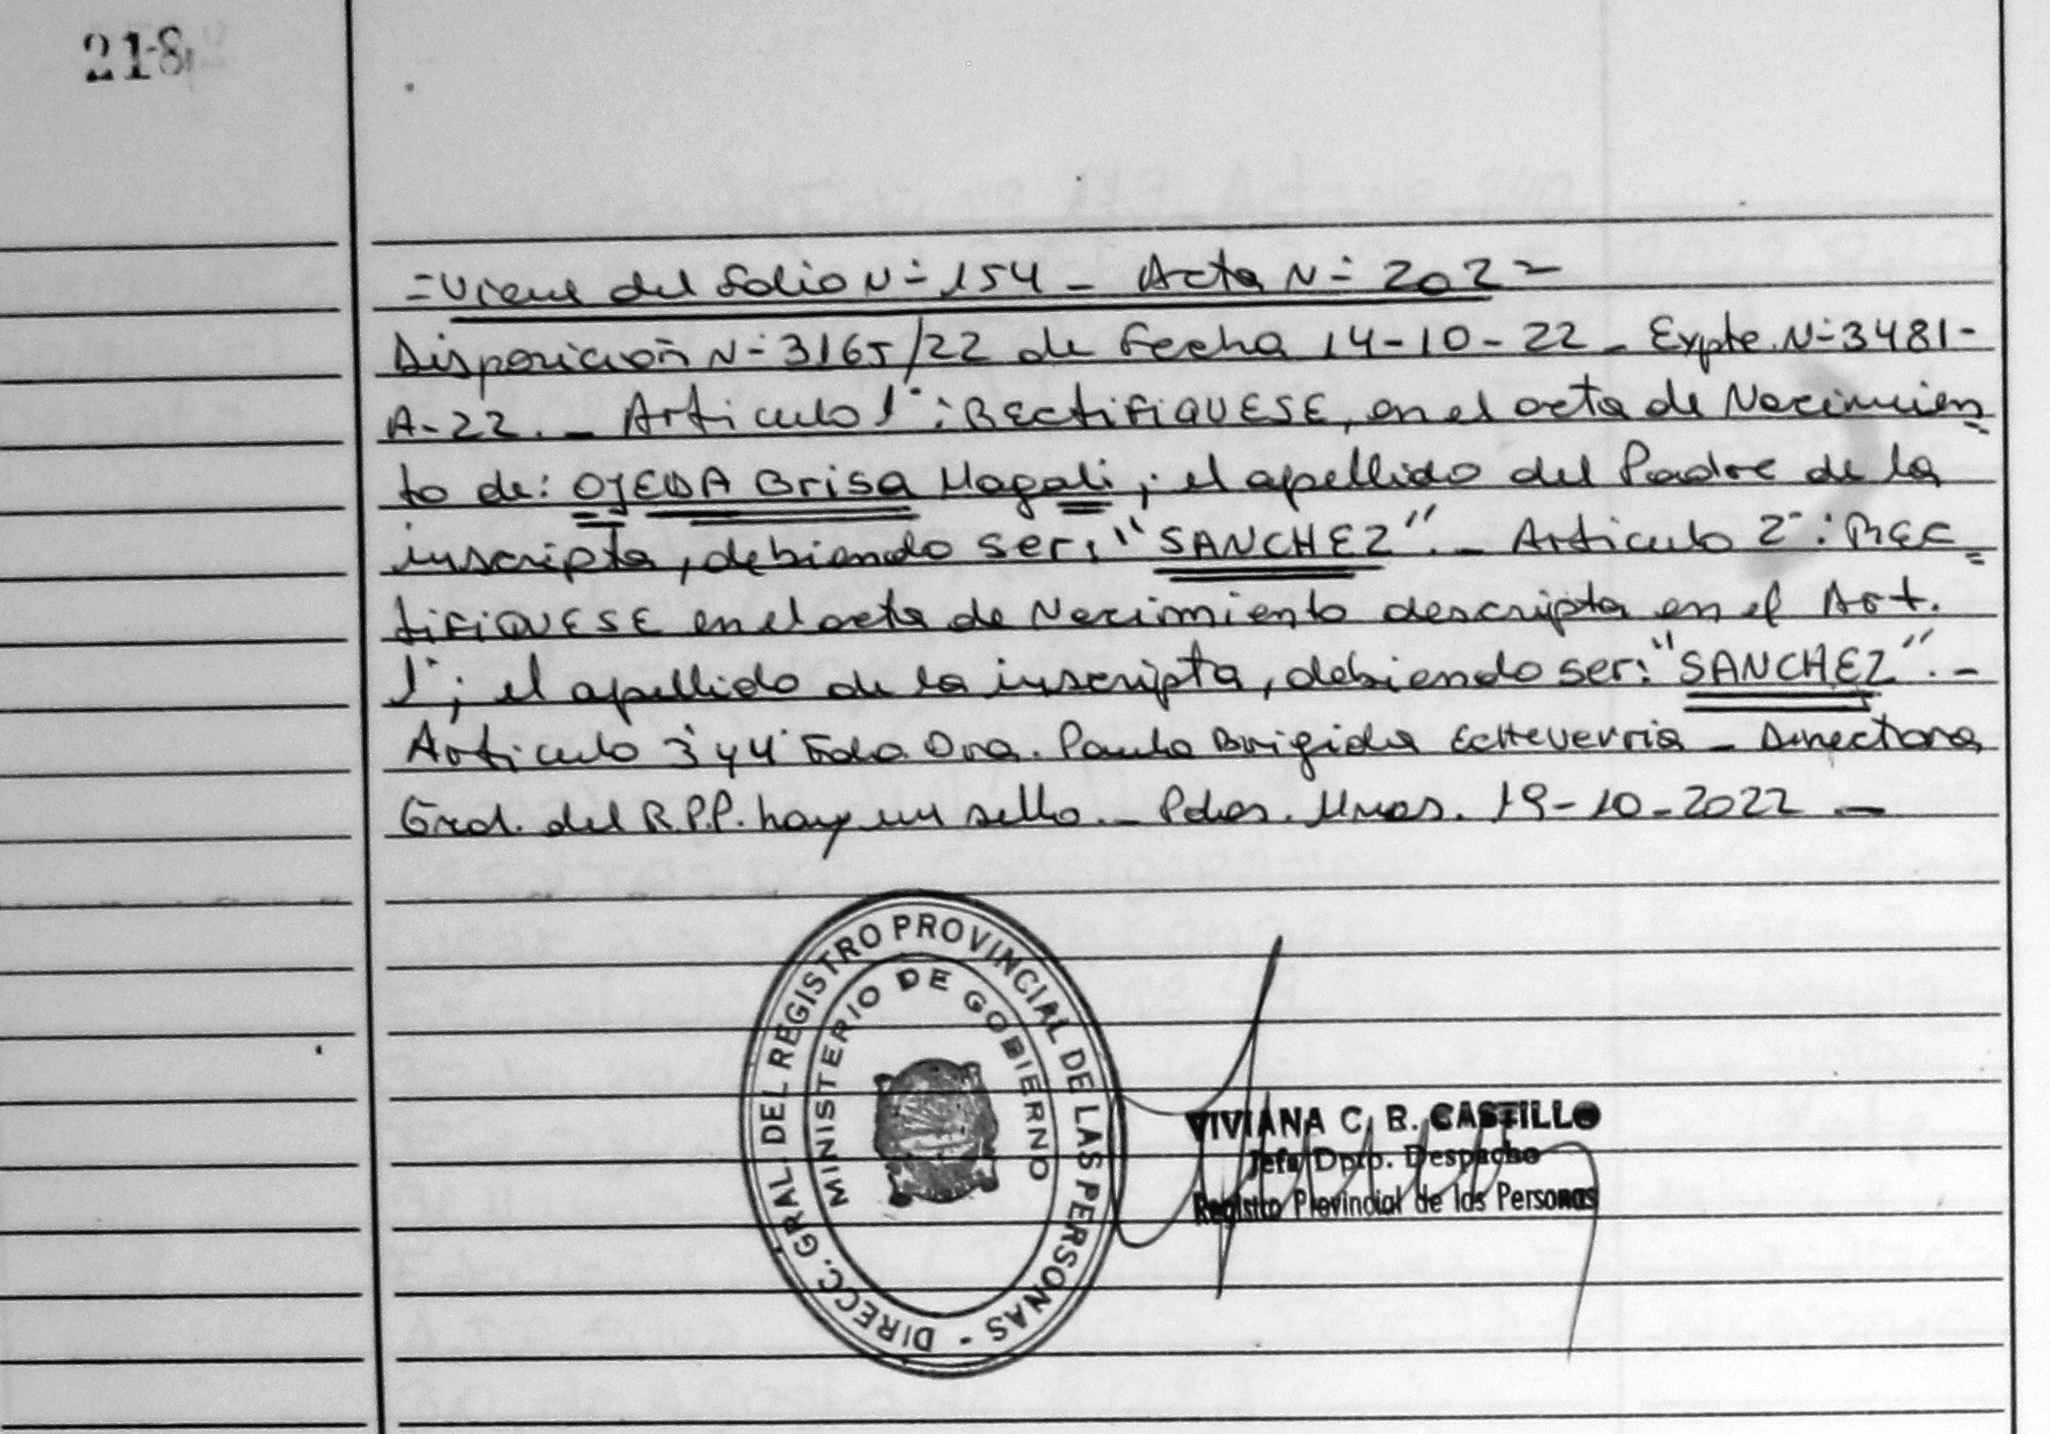 218
=Viene del Folio N= 154 - Acta N= 202=
Disposición N= 3165/22 de Fecha 14-10-22 - Expte. N= 3481-
A-22. - Articulo 1°: RECtiFiQUESE, en el acta de Nacimien=
to de: OJEDA Brisa Magali; el apellido del Padre de la
inscripta, debiendo ser: "SANCHEZ". - Articulo 2°: REC=
tiFiQUESE en el acta de Nacimiento descripta en el Art.
1°; el apellido de la inscripta, debiendo ser: "SANCHEZ". -
Articulo 3° y 4° Fdo. Dra. Paula Brigida Echeverria - Directora
Gral. del R.P.P. hay un sello. - Pdas. Mnes. 19-10-2022 -
DIRECC. GRAL. DEL REGISTRO PROVINCIAL DE LAS PERSONAS -
MINISTERIO DE GOBIERNO
VIVIANA C. B. CASTILLO
Jefa Dpto. Despacho
Registro Provincial de las Personas